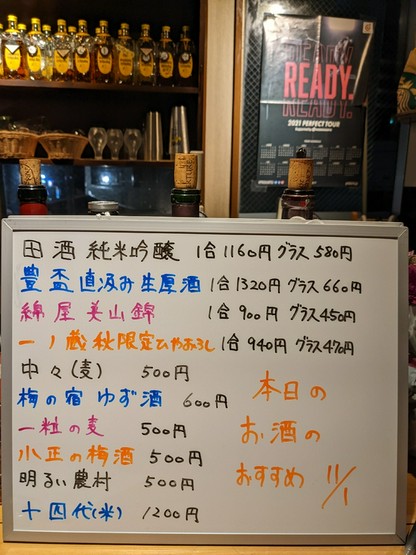 READY.
2021 PERFECT TOUR
田酒 純米吟醸 1合1160円 グラス580円
豊盃 直汲み生原酒 1合1320円 グラス660円
綿屋 美山錦 1合900円 グラス450円
一ノ蔵 秋限定ひやおろし 1合940円 グラス470円
中々(麦) 500円
梅の宿 ゆず酒 600円
一粒の麦 500円
小正の梅酒 500円
明るい農村 500円
十四代(米) 1200円
本日の
お酒の
おすすめ 11/1